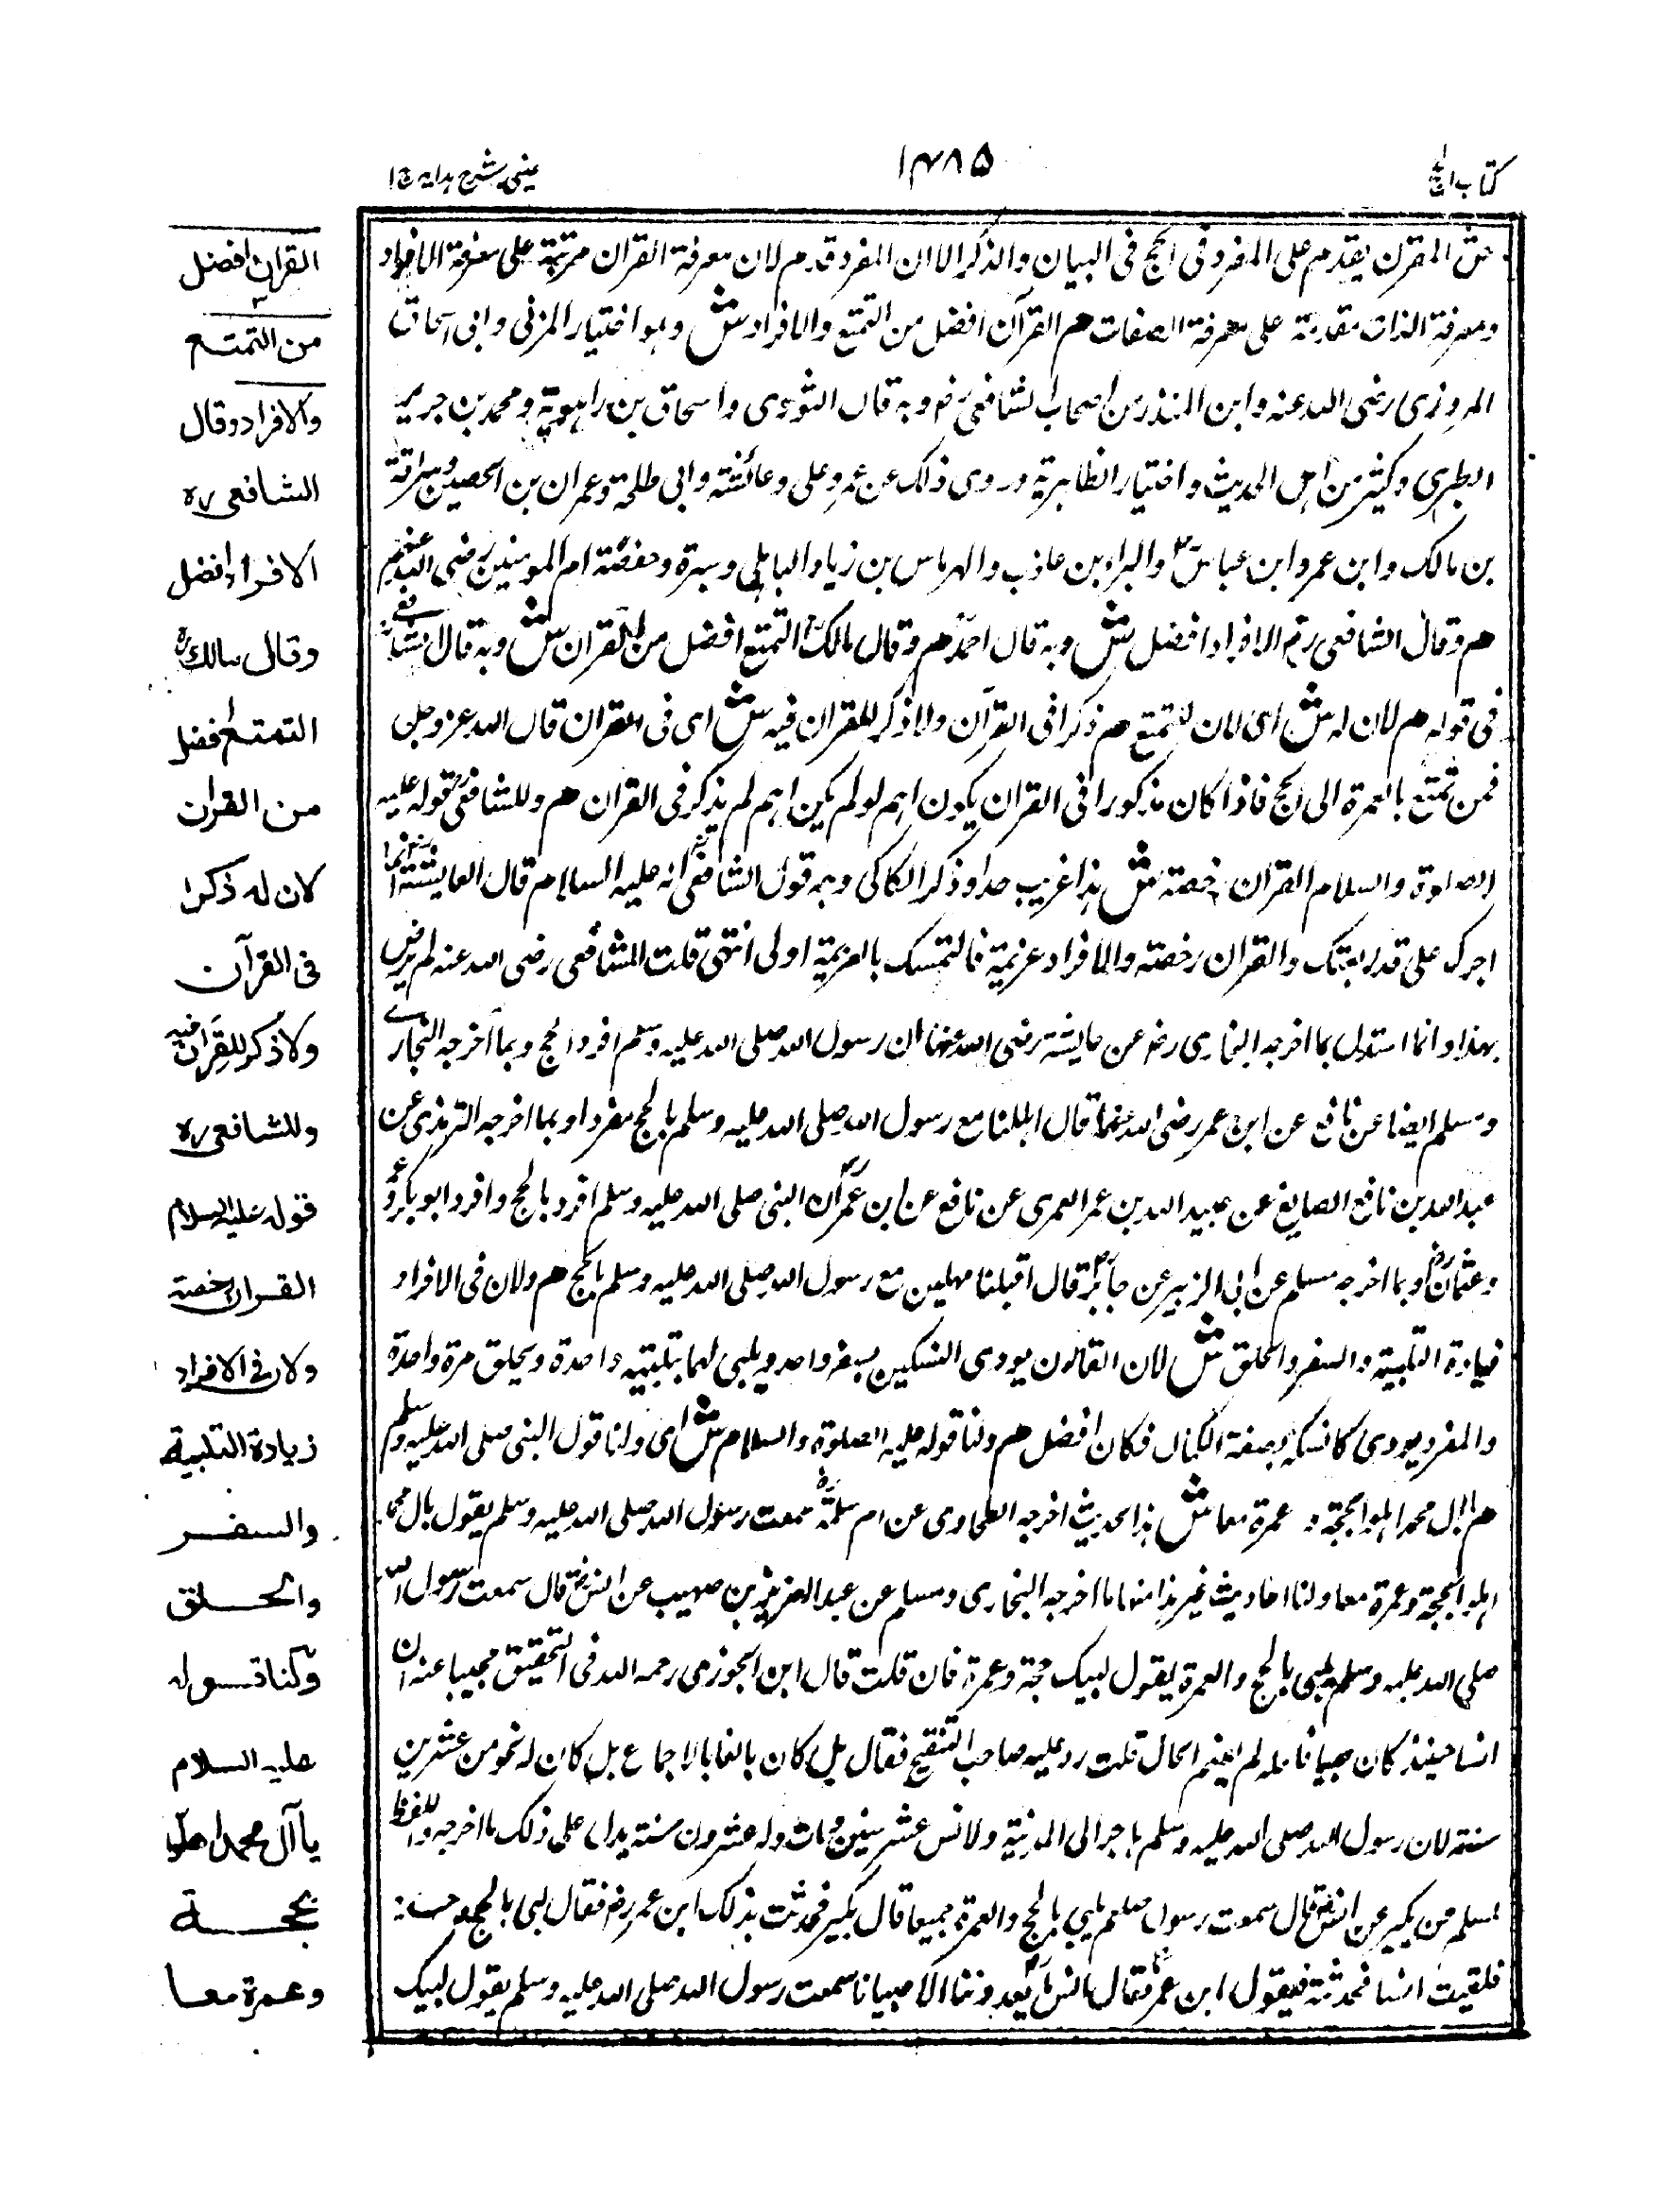 كتاب الحج
١٤٨٥
عينى شرح ہدايہ ج ١
حق المقرن يقدم على المفرد فى الحج فى البيان والذكر الا ان المفرد قدم لان معرفة القران مرتبة على معرفة الافراد
ومعرفة الذات مقدمة على معرفة الصفات هم القرآن افضل من التمتع والافراد ش وہو اختيار المزنى وابى اسحاق
المروزى رضى اللہ عنہ وابن المنذر من اصحاب الشافعى رضہ وبہ قال الثورى واسحاق بن راہويہ ومحمد بن جرير
الطبرى وكثير من اہل الحديث واختيار الظاہرية وروى ذلك عن عمر وعلى وعائشة وابى طلحة وعمران بن الحصين وسراقة
بن مالك وابن عمر وابن عباس والبراء بن عاذب والہرماس بن زياد الباہلى وسبرة وحفصة ام المومنين رضى اللہ عنہم
هم وقال الشافعى رح الافراد افضل ش وبہ قال احمد هم وقال مالك التمتع افضل من القران ش وبہ قال الشافعے
فى قولہ هم لان لہ ش اى لان للتمتع هم ذكرا فى القرآن ولا ذكر للقران فيہ ش اى فى القران قال اللہ عز وجل
فمن تمتع بالعمرة الى الحج فاذا كان مذكورا فى القران يكون اہم لو لم يكن اہم لم يذكر فى القران هم وللشافعى قولہ عليہ
الصلوة والسلام القران رخصة ش ہذا غريب جدا وذكر الكاكى وجہ قول الشافعى انہ عليہ السلام قال لعايشة انما
اجرك على قدر تعبك والقران رخصة والافراد عزيمة فالتمسك بالعزيمة اولى انتہى قلت الشافعى رضى اللہ عنہ لم يرض
بہذا وانما استدل بما اخرجہ البخارى رضہ عن عايشة رضى اللہ عنہا ان رسول اللہ صلى اللہ عليہ وسلم افرد الحج وبما اخرجہ البخارے
ومسلم ايضا عن نافع عن ابن عمر رضى اللہ عنہما قال اہللنا مع رسول اللہ صلى اللہ عليہ وسلم بالحج مفردا وبما اخرجہ الترمذى عن
عبد اللہ بن نافع الصايغ عن عبيد اللہ بن عمر العمرى عن نافع عن ابن عمر ان النبى صلى اللہ عليہ وسلم افرد بالحج وافرد ابو بكر وعمر
وعثمان وبما اخرجہ مسلم عن ابى الزبير عن جابر قال اقبلنا مہلين مع رسول اللہ صلى اللہ عليہ وسلم بالحج هم ولان فى الافراد
زيادة التلبية والسفر والحلق ش لان القارن يودى النسكين بسفر واحد ويلبى لہما بتلبية واحدة ويحلق مرة واحدة
والمفرد يودى كل نسك بصفة الكمال فكان افضل هم ولنا قولہ عليہ الصلوة والسلام ش اى ولنا قول النبى صلى اللہ عليہ وسلم
هم يا آل محمد اہلوا بحجة وعمرة معا ش ہذا الحديث اخرجہ الطحاوى عن ام سلمة سمعت رسول اللہ صلى اللہ عليہ وسلم يقول يا آل محمد
اہلوا بحجة وعمرة معا ولنا احاديث غير ہذا منہا ما اخرجہ البخارى ومسلم عن عبد العزيز بن صہيب عن انس قال سمعت رسول اللہ
صلى اللہ عليہ وسلم يلبى بالحج والعمرة يقول لبيك حجة وعمرة فان قلت قال ابن الجوزى رحمہ اللہ فى التحقيق مجيبا عنہ ان
انسا حينئذ كان صبيا فلعلہ لم يفہم الحال قلت رد عليہ صاحب التنقيح فقال بل كان بالغا بالاجماع بل كان لہ نحو من عشرين
سنة لان رسول اللہ صلى اللہ عليہ وسلم ہاجر الى المدينة ولانس عشر سنين ومات ولہ عشرون سنة يدل على ذلك ما اخرجہ واللفظ
لمسلم عن بكير عن انس قال سمعت رسول صلعم يلبى بالحج والعمرة جميعا قال بكير فحدثت بذلك ابن عمر رضہ فقال لبى بالحج وحدہ
فلقيت انسا فحدثتہ فيقول ابن عمر فقال انس ما يعدوننا الا صبيانا سمعت رسول اللہ صلى اللہ عليہ وسلم يقول لبيك
القران افضل
من التمتع
والافراد وقال
الشافعى رہ
الافراد افضل
وقال مالك رہ
التمتع افضل
من القران
لان له ذكرا
فى القرآن
ولا ذكر للقران فيه
وللشافعى رہ
قوله عليه السلام
القران رخصة
ولان فى الافراد
زيادة التلبية
والسفر
والحلق
ولنا قوله
عليه السلام
يا آل محمد اهلوا
بحجة
وعمرة معا